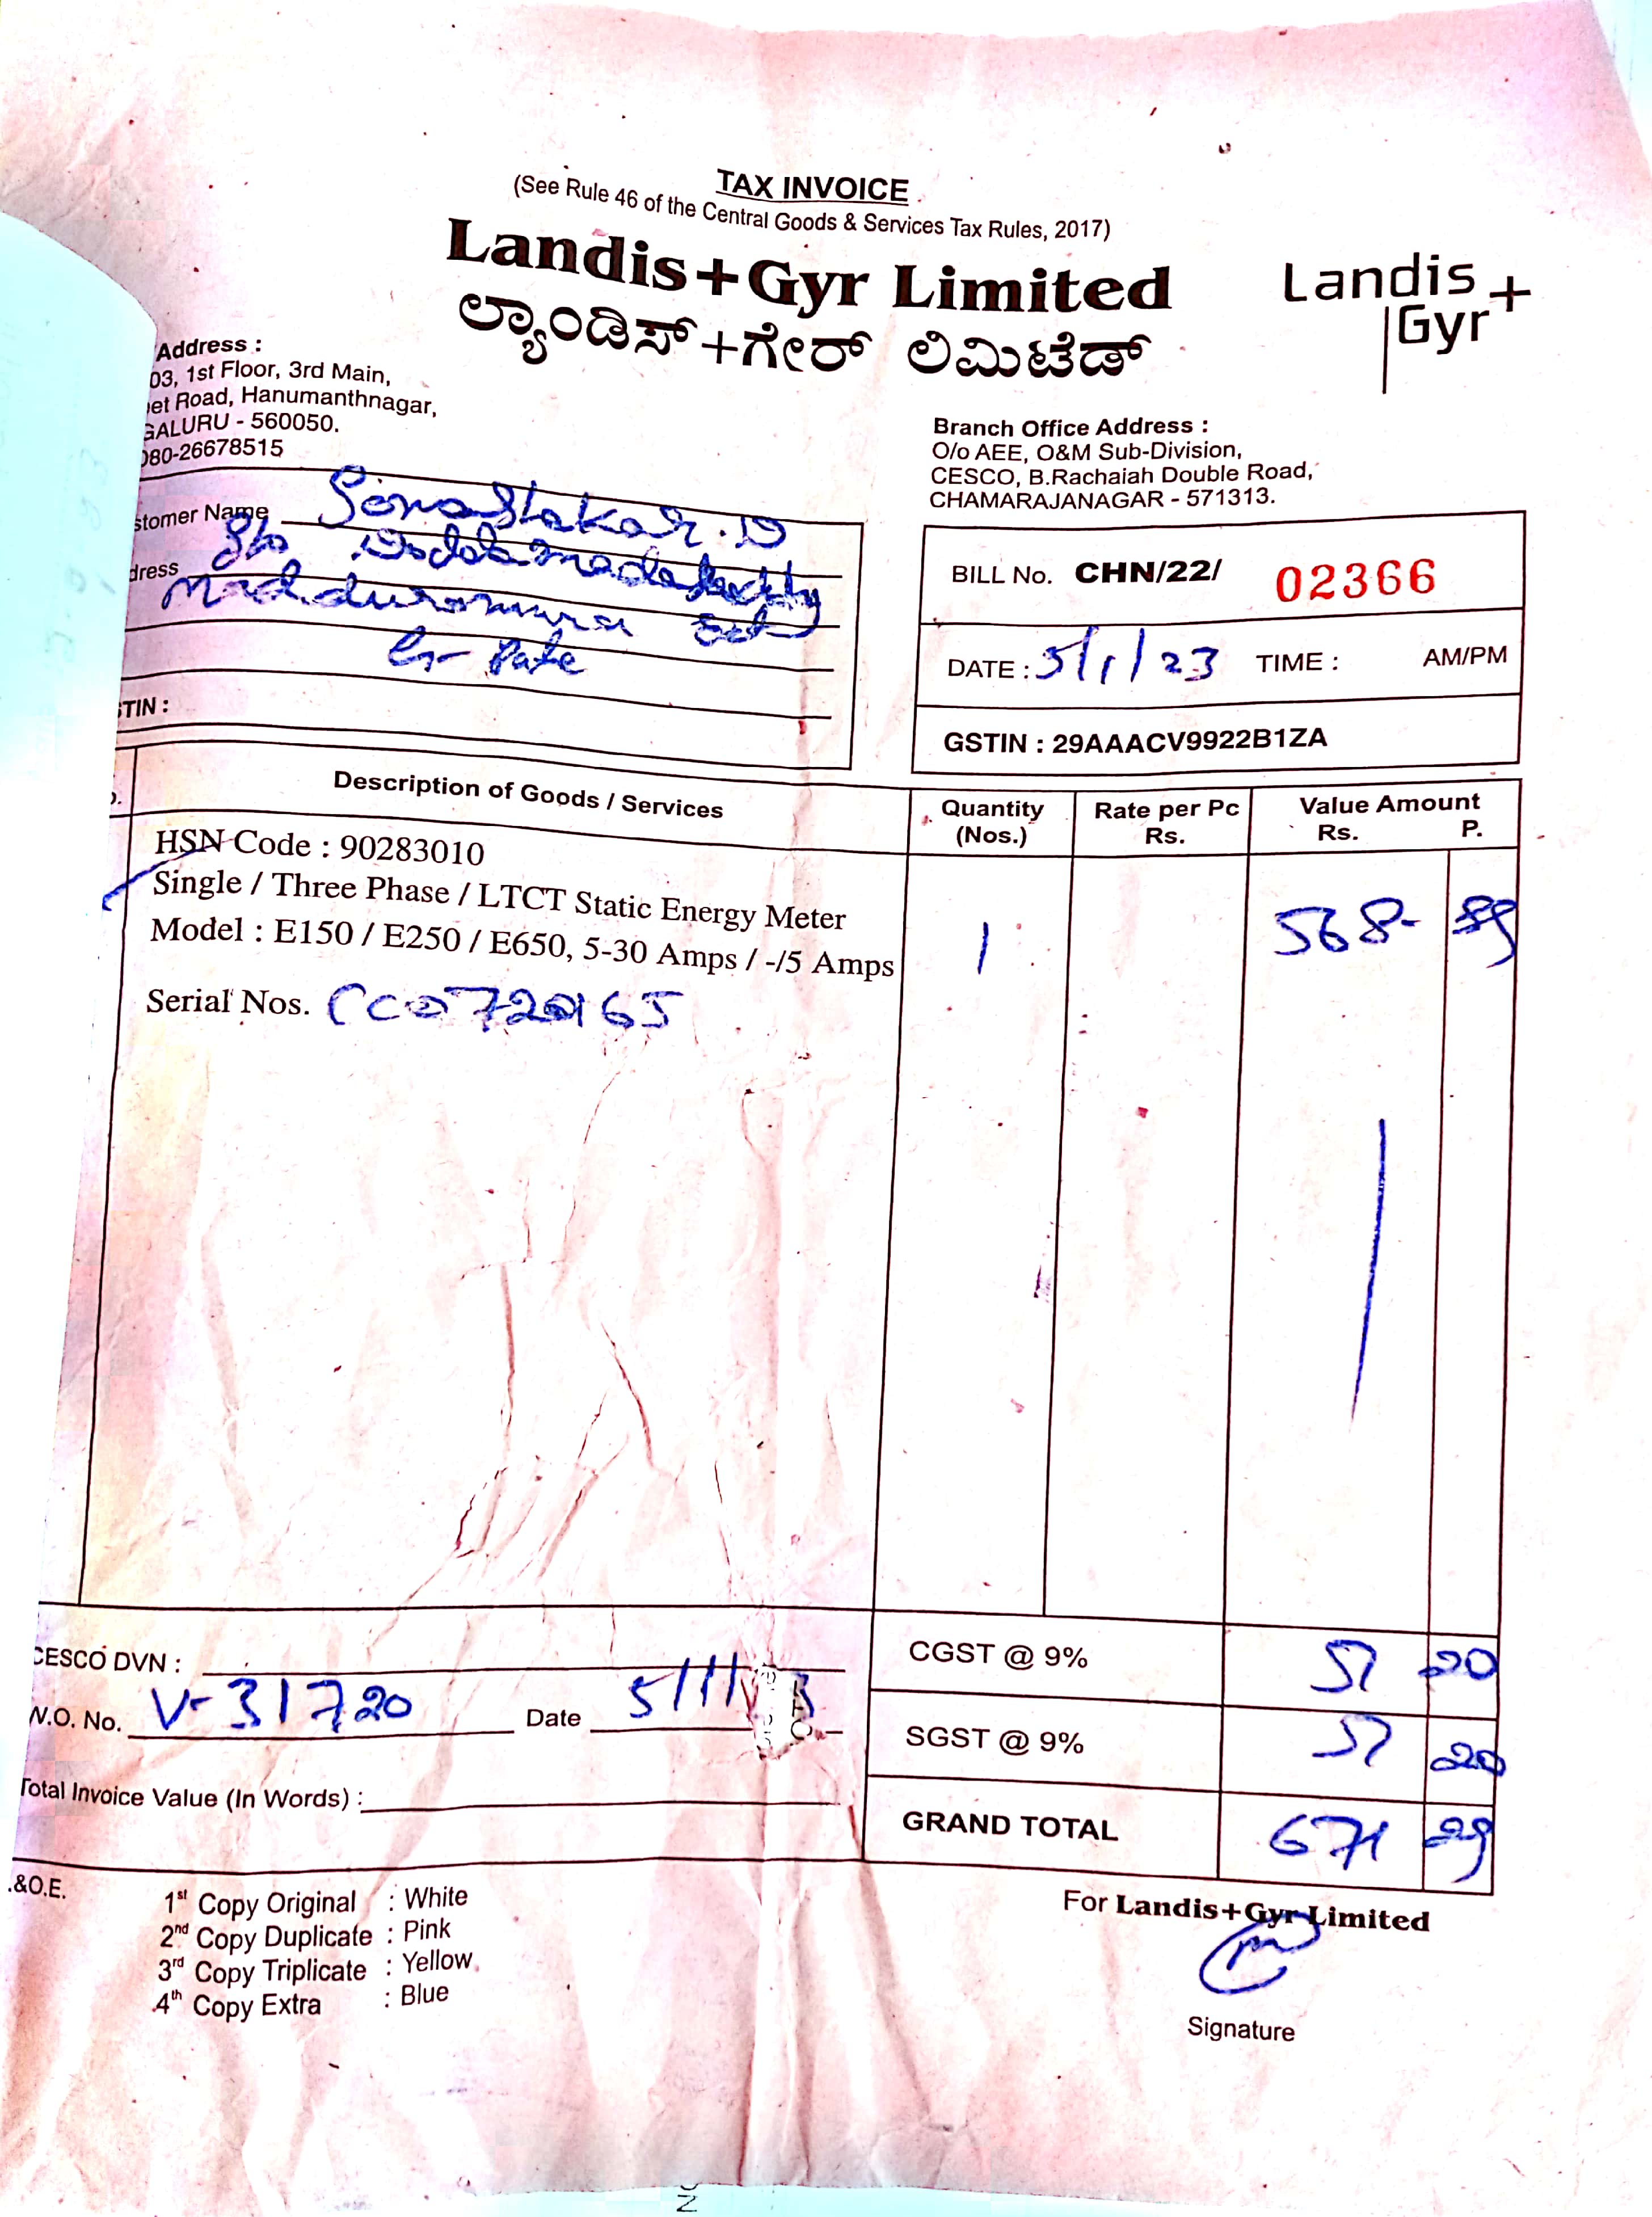 TAX INVOICE
(See Rule 46 of the Central Goods & Services Tax Rules, 2017)
Landis+Gyr Limited
ಲ್ಯಾಂಡಿಸ್+ಗೇರ್ ಲಿಮಿಟೆಡ್
Landis+
Gyr
Address :
03, 1st Floor, 3rd Main,
et Road, Hanumanthnagar,
GALURU - 560050.
080-26678515
Branch Office Address :
O/o AEE, O&M Sub-Division,
CESCO, B.Rachaiah Double Road,
CHAMARAJANAGAR - 571313.
stomer Name
S/o
dress
STIN :
BILL No. CHN/22/ 02366
DATE : 5/1/23 TIME : AM/PM
GSTIN : 29AAACV9922B1ZA
Description of Goods / Services
Quantity (Nos.)
Rate per Pc Rs.
Value Amount Rs. P.
HSN Code : 90283010
Single / Three Phase / LTCT Static Energy Meter
Model : E150 / E250 / E650, 5-30 Amps / -/5 Amps
1 568- 89
Serial Nos.
CESCO DVN :
W.O. No. V-31720 Date
Total Invoice Value (In Words) :
CGST @ 9% 51 20
SGST @ 9% 51 20
GRAND TOTAL 671 29
.&O.E.
1st Copy Original : White
2nd Copy Duplicate : Pink
3rd Copy Triplicate : Yellow
4th Copy Extra : Blue
For Landis+Gyr Limited
Signature